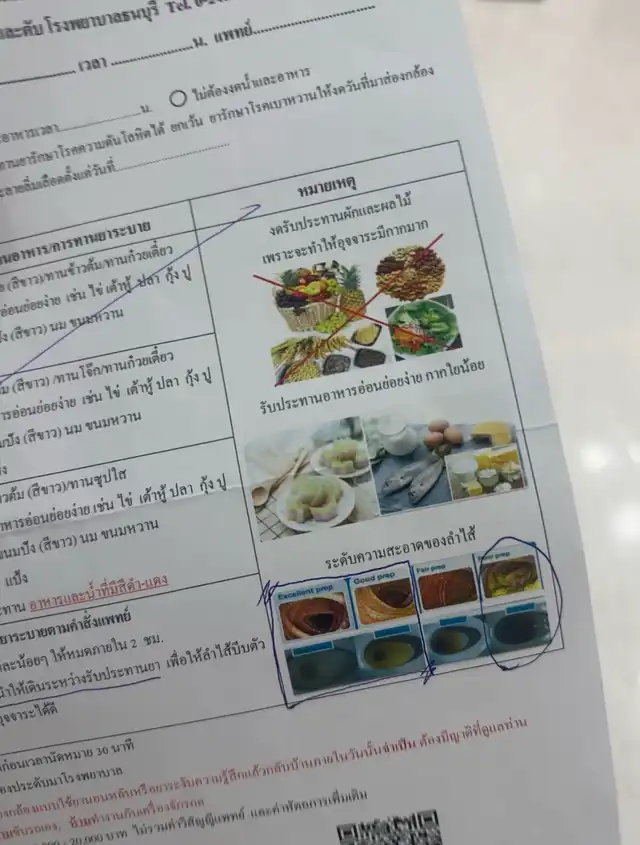 และตับ โรงพยาบาลธนบุรี Tel.
เวลา น. แพทย์
น. ไม่ต้องงดน้ำและอาหาร
อาหารเวลา
ทานยารักษาโรคความดันโลหิตได้ ยกเว้น ยารักษาโรคเบาหวานให้งดวันที่มาส่องกล้อง
ละลายลิ่มเลือดตั้งแต่วันที่
หมายเหตุ
อาหาร/การทานยาระบาย
งดรับประทานผักและผลไม้
เพราะจะทำให้อุจจาระมีกากมาก
(สีขาว)/ทานข้าวต้ม/ทานก๋วยเตี๋ยว
อ่อนย่อยง่าย เช่น ไข่ เต้าหู้ ปลา กุ้ง ปู
(สีขาว) นม ขนมหวาน
รับประทานอาหารอ่อนย่อยง่าย กากใยน้อย
(สีขาว) /ทานโจ๊ก/ทานก๋วยเตี๋ยว
อ่อนย่อยง่าย เช่น ไข่ เต้าหู้ ปลา กุ้ง ปู
(สีขาว) นม ขนมหวาน
(สีขาว)/ทานซุปใส
อาหารอ่อนย่อยง่าย เช่น ไข่ เต้าหู้ ปลา กุ้ง ปู
ขนมปัง (สีขาว) นม ขนมหวาน
แป้ง
อาหารและน้ำที่มีสีดำ-แดง
ระดับความสะอาดของลำไส้
Excellent prep Good prep Fair prep Poor prep
ยาระบายตามคำสั่งแพทย์
ละน้อยๆ ให้หมดภายใน 2 ชม.
ให้เดินระหว่างรับประทานยา เพื่อให้ลำไส้บีบตัว
อุจจาระได้ดี
ก่อนเวลานัดหมาย 30 นาที
ของประดับมาโรงพยาบาล
องกล้องแบบใช้ยานอนหลับหรือยาระงับความรู้สึกแล้วกลับบ้านภายในวันนั้นจำเป็น ต้องมีญาติที่ดูแลท่าน
ห้ามทำงานกับเครื่องจักรกล
20,000 บาท ไม่รวมค่าวิสัญญีแพทย์ และค่าหัตถการเพิ่มเติม